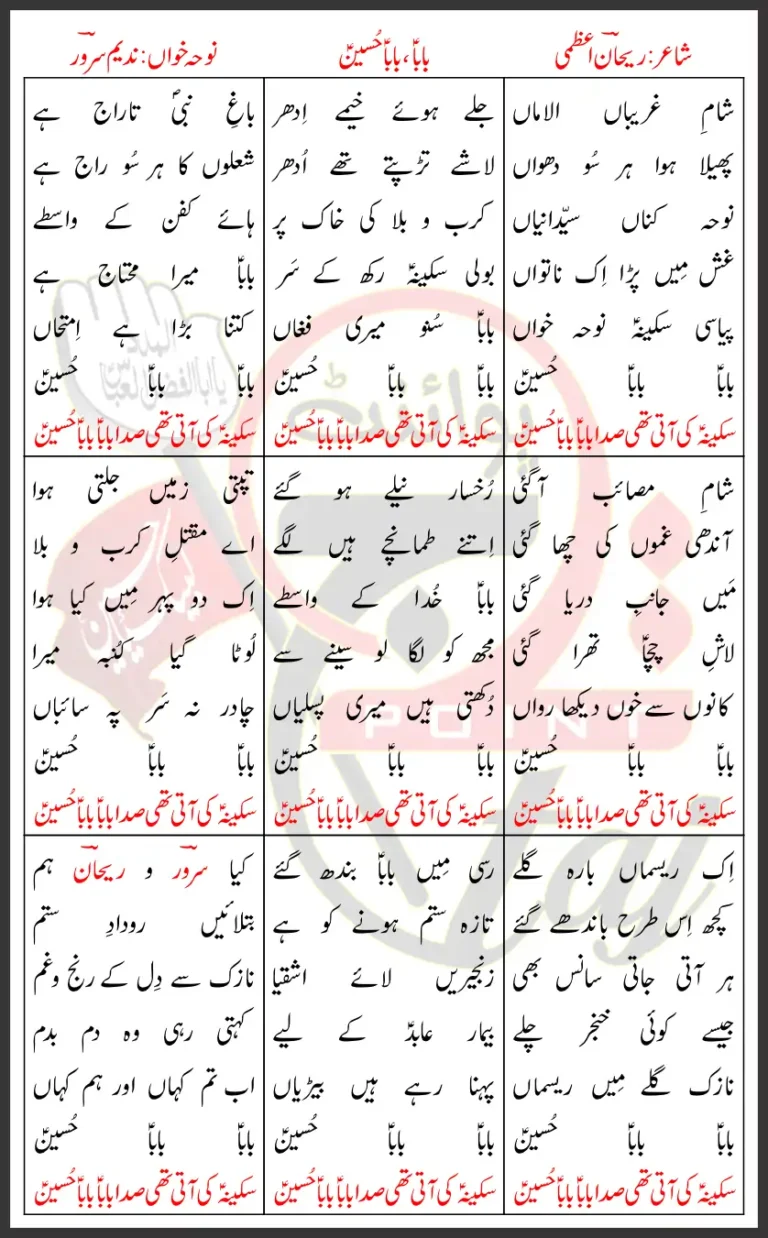 شاعر: ریحانؔ اعظمی
باباؑ، باباؑ حُسینؑ
نوحہ خواں: ندیم سرورؔ
شامِ غریباں الاماں
پھیلا ہوا ہر سُو دھواں
نوحہ کناں سیّدانیاں
غش مِیں پڑا اِک ناتواں
پیاسی سکینہؑ نوحہ خواں
باباؑ باباؑ حُسینؑ
سکینہؑ کی آتی تھی صدا باباؑ باباؑ حُسینؑ
جلے ہوئے خیمے اِدھر
لاشے تڑپتے تھے اُدھر
کرب و بلا کی خاک پر
بولی سکینہؑ رکھ کے سَر
باباؑ سُنو میری فغاں
باباؑ باباؑ حُسینؑ
سکینہؑ کی آتی تھی صدا باباؑ باباؑ حُسینؑ
باغِ نبیؐ تاراج ہے
شعلوں کا ہر سُو راج ہے
ہائے کفن کے واسطے
باباؑ میرا محتاج ہے
کتنا بڑا ہے اِمتحاں
باباؑ باباؑ حُسینؑ
سکینہؑ کی آتی تھی صدا باباؑ باباؑ حُسینؑ
شامِ مصائب آ گئی
آندھی غموں کی چھا گئی
مَیں جانبِ دریا گئی
لاشِ چچاؑ تھرا گئی
کانوں سے خوں دیکھا رواں
باباؑ باباؑ حُسینؑ
سکینہؑ کی آتی تھی صدا باباؑ باباؑ حُسینؑ
رُخسار نیلے ہو گئے
اِتنے طمانچے ہیں لگے
باباؑ خُدا کے واسطے
مجھ کو لگا لو سینے سے
دُکھتی ہیں میری پسلیاں
باباؑ باباؑ حُسینؑ
سکینہؑ کی آتی تھی صدا باباؑ باباؑ حُسینؑ
تپتی زمیں جلتی ہوا
اے مقتلِ کرب و بلا
اِک دو پہر مِیں کیا ہوا
لُوٹا گیا کُنبہ میرا
چادر نہ سَر پہ سائباں
باباؑ باباؑ حُسینؑ
سکینہؑ کی آتی تھی صدا باباؑ باباؑ حُسینؑ
اِک ریسماں بارہ گلے
کچھ اِس طرح باندھے گئے
ہر آتی جاتی سانس بھی
جیسے کوئی خنجر چلے
نازک گلے مِیں ریسماں
باباؑ باباؑ حُسینؑ
سکینہؑ کی آتی تھی صدا باباؑ باباؑ حُسینؑ
رسی مِیں باباؑ بندھ گئے
تازہ ستم ہونے کو ہے
زنجیریں لائے اشقیا
بیمار عابدؑ کے لیے
پہنا رہے ہیں بیڑیاں
باباؑ باباؑ حُسینؑ
سکینہؑ کی آتی تھی صدا باباؑ باباؑ حُسینؑ
کیا سرورؔ و ریحانؔ ہم
بتلائیں رودادِ ستم
نازک سے دِل کے رنج و غم
کہتی رہی وہ دم بدم
اب تم کہاں اور ہم کہاں
باباؑ باباؑ حُسینؑ
سکینہؑ کی آتی تھی صدا باباؑ باباؑ حُسینؑ
POINT